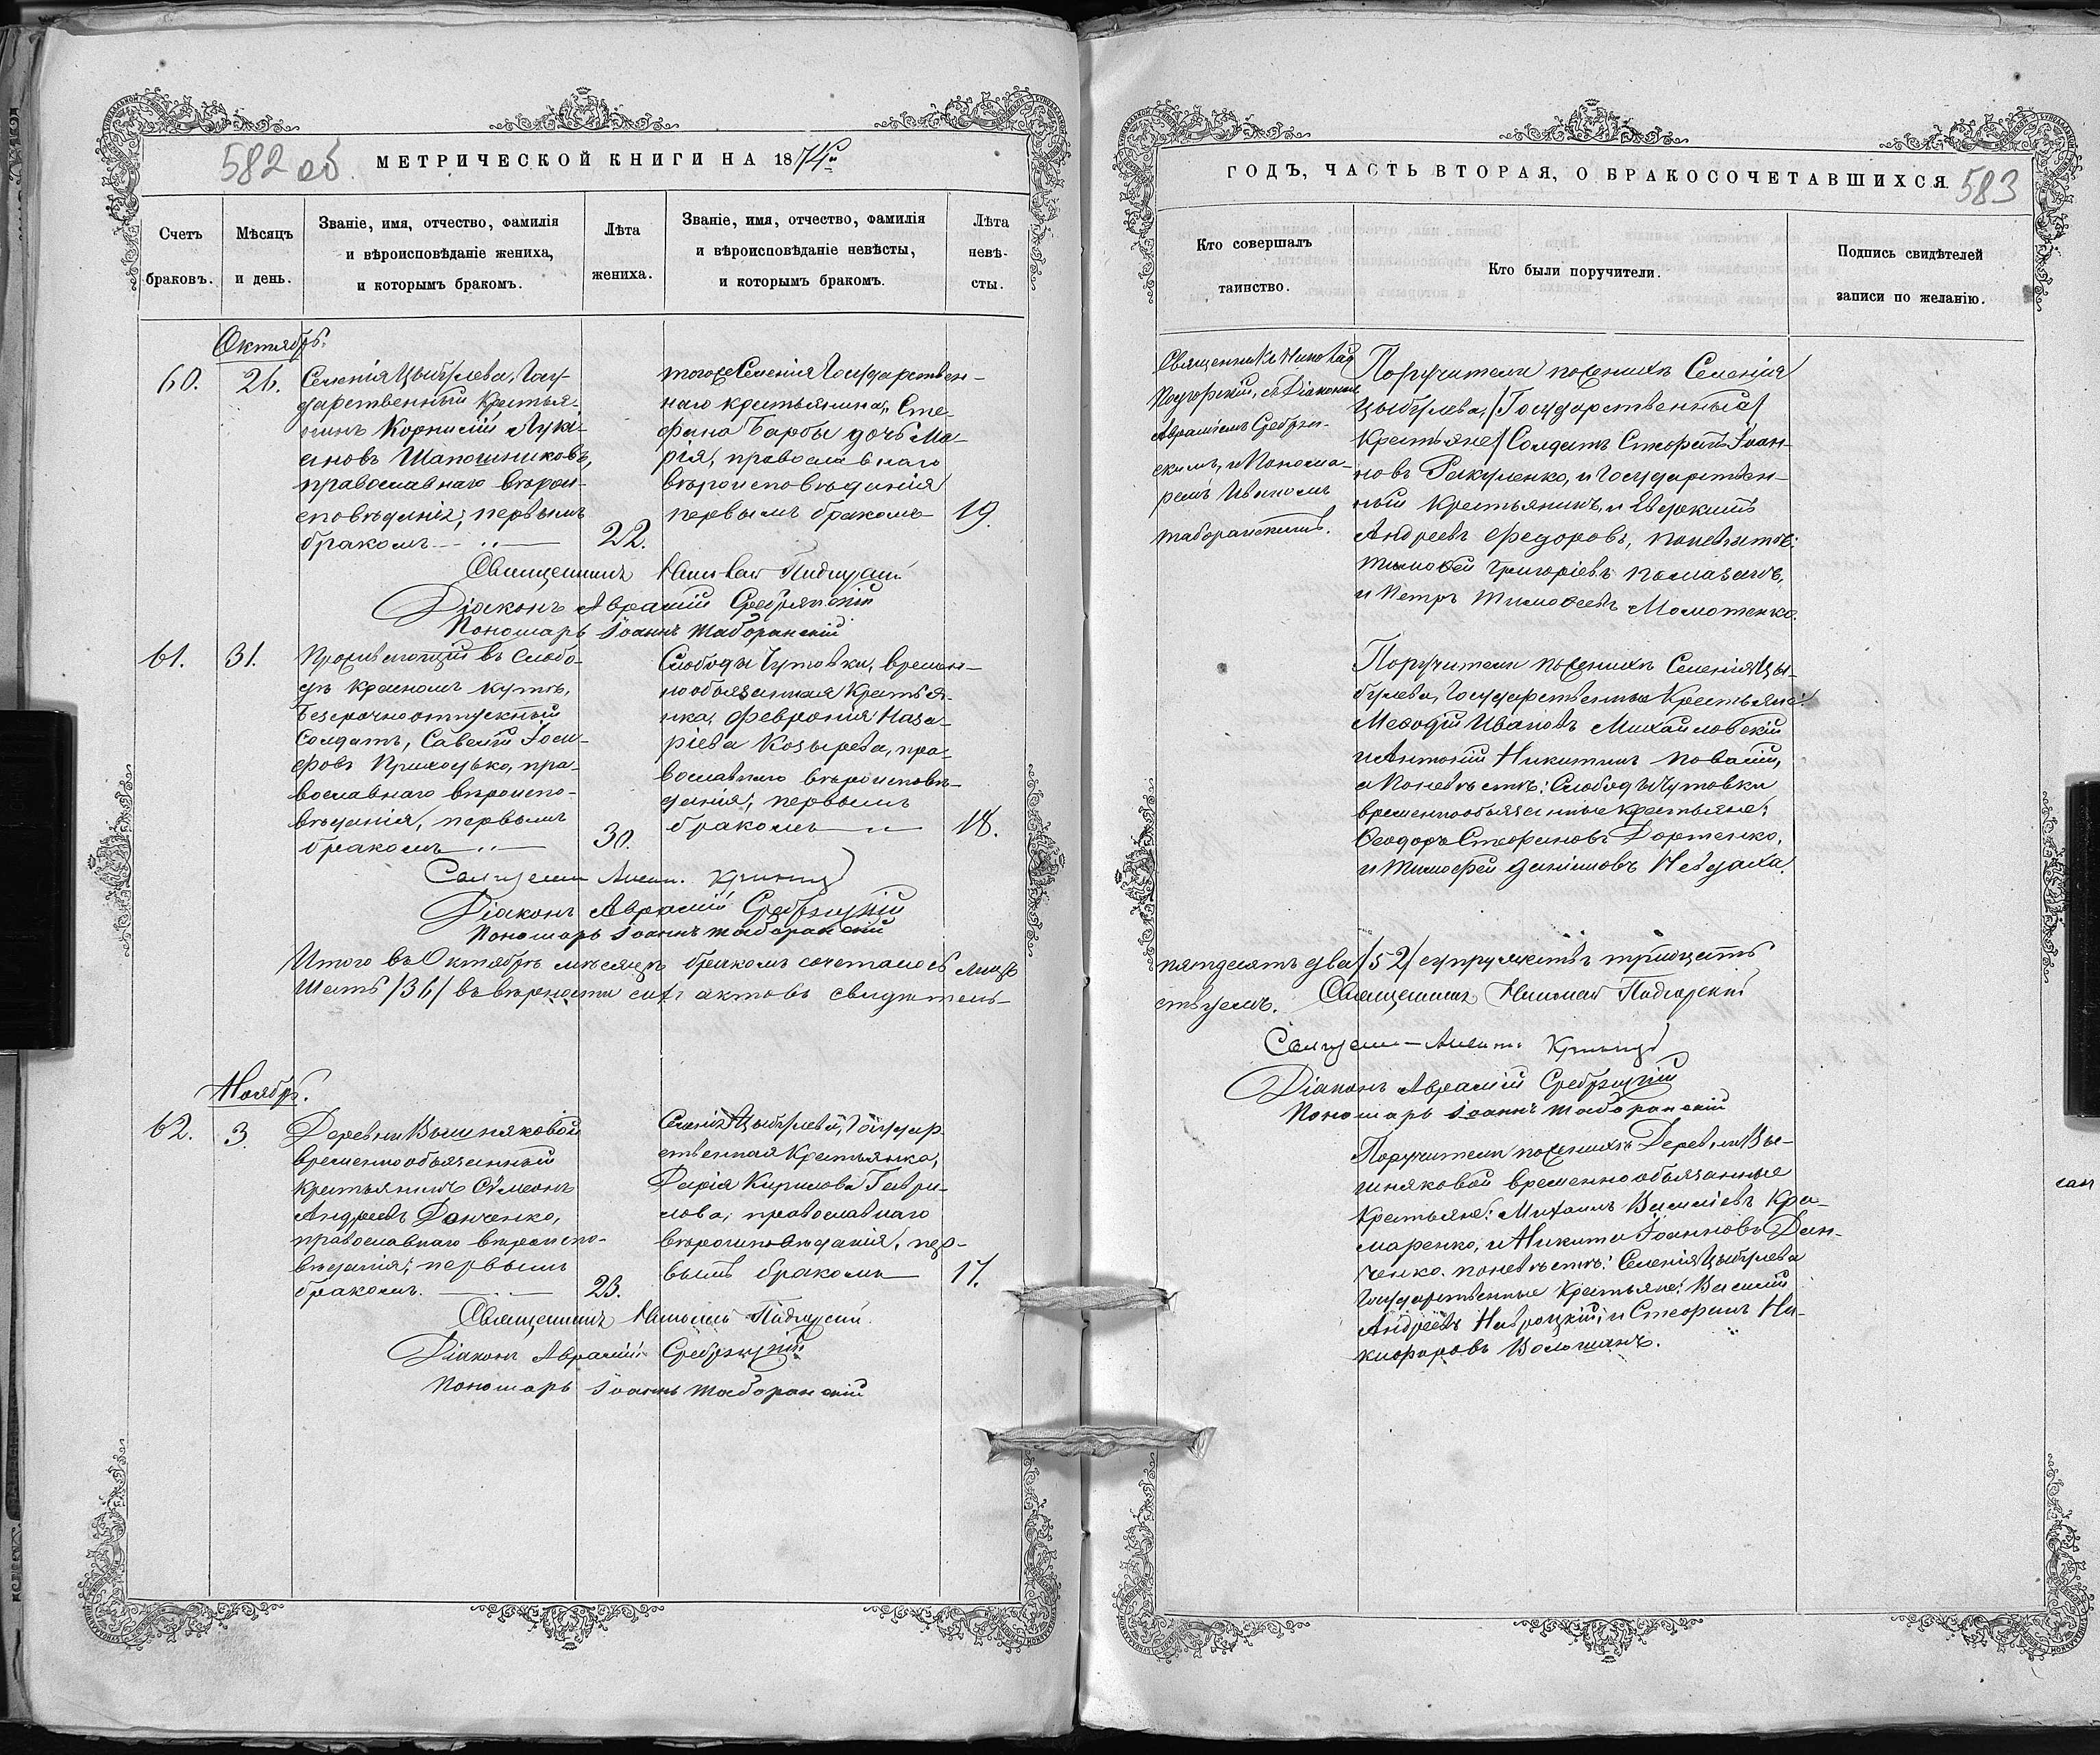 582 об.
МЕТРИЧЕСКОЙ КНИГИ НА 1874й
Счетъ браковъ.
Мѣсяцъ и день.
Званіе, имя, отчество, фамилія
и вѣроисповѣданіе жениха,
и которымъ бракомъ.
Лѣта
жениха.
Званіе, имя, отчество, фамилія
и вѣроисповѣданіе невѣсты,
и которымъ бракомъ.
Лѣта
невѣ-
сты.
Октябрь.
60. 26.
Селенія Цыбулева, Госу-
дарственный Крестья-
нинъ Корнилій Лукі-
ановъ Шапошниковъ,
православнаго вѣрои-
сповѣданія, первымъ
бракомъ 22.
тогоже Селенія Государствен-
наго крестьянина, Сте-
фана Барбы дочь Ма-
рія, православнаго
вѣроисповѣданія
первымъ бракомъ 19.
Священникъ Николай Подгорскій
Діаконъ Аврамій Сребрянскій
Пономарь Іоаннъ Таборанскій
61. 31.
Проживающій въ Слобо-
дѣ Красномъ Кутѣ,
Безсрочноотпускный
Солдатъ, Савелій Іоси-
фовъ Приходько, пра-
вославнаго вѣроиспо-
вѣданія, первымъ
бракомъ 30.
Слободы Чутовки, времен-
нообязанная Крестья-
нка, Февронія Наза-
ріева Козырева, пра-
вославнаго вѣроисповѣ-
данія, первымъ
бракомъ 18.
Священ
Діаконъ Аврамій Сребрянскій
Пономарь Іоаннъ Таборанскій
Итого въ Октябрѣ мѣсяцѣ бракомъ сочеталось
Шесть /36/ въ вѣрности сихъ актовъ свидѣтель-
Ноябрь.
62. 3.
Деревни Вишняковой
временнообязанный
крестьянинъ Сѵмеонъ
Андреевъ Данченко,
православнаго вѣроиспо-
вѣданія, первымъ
бракомъ. 23.
Селенія Цыбулева, Государ-
ственная Крестьянка,
Дарія Кирилова Гаври-
лова, православнаго
вѣроисповѣданія, пер-
вымъ бракомъ 17.
Священникъ Николай Подгорскій
Діаконъ Аврамій Сребрянскій
Пономарь Іоаннъ Таборанскій
ГОДЪ, ЧАСТЬ ВТОРАЯ, О БРАКОСОЧЕТАВШИХСЯ.
583
Кто совершалъ
таинство.
Кто были поручители.
Подпись свидѣтелей
записи по желанію.
Священникъ Николай
Подгорскій, съ Діакономъ
Авраміемъ Сребрян-
скимъ, и Понома-
ремъ Иваномъ
Таборанскимъ.
Поручители по женихѣ Селенія
Цыбулева, /Государственные/
Крестьяне/ Солдатъ Стефанъ Іоан-
новъ Ракуленко, и Государствен-
ный Крестьянинъ, и Евдокимъ
Андреевъ Федоровъ, по невѣстѣ:
Тимоѳей Григоріевъ Помазанъ,
и Петръ Тимоѳеевъ Момотенко.
Поручители по женихѣ Селенія Цы-
булева, Государственные Крестьяне:
Меѳодій Ивановъ Михайловскій
и Антоній Никитинъ
а по невѣстѣ: Слободы Чутовки
временнообязанные крестьяне:
Ѳеодоръ Стефановъ
и Тимофей Даниловъ
пятдесятъ два /52/ супружествъ тридцать
ствуемъ. Священникъ Николай Подгорскій
Священ
Діаконъ Аврамій Сребрянскій
Пономарь Іоаннъ Таборанскій
Поручители по женихѣ Деревни Ви-
шняковой временнообязанные
Крестьяне: Михаилъ Василіевъ Кра-
маренко, и Никита Іоанновъ Дан-
ченко. по невѣстѣ: Селенія Цыбулева
Государственные Крестьяне: Василій
Андреевъ Навроцкій, и Стефанъ Ни-
кифоровъ Волошинъ.